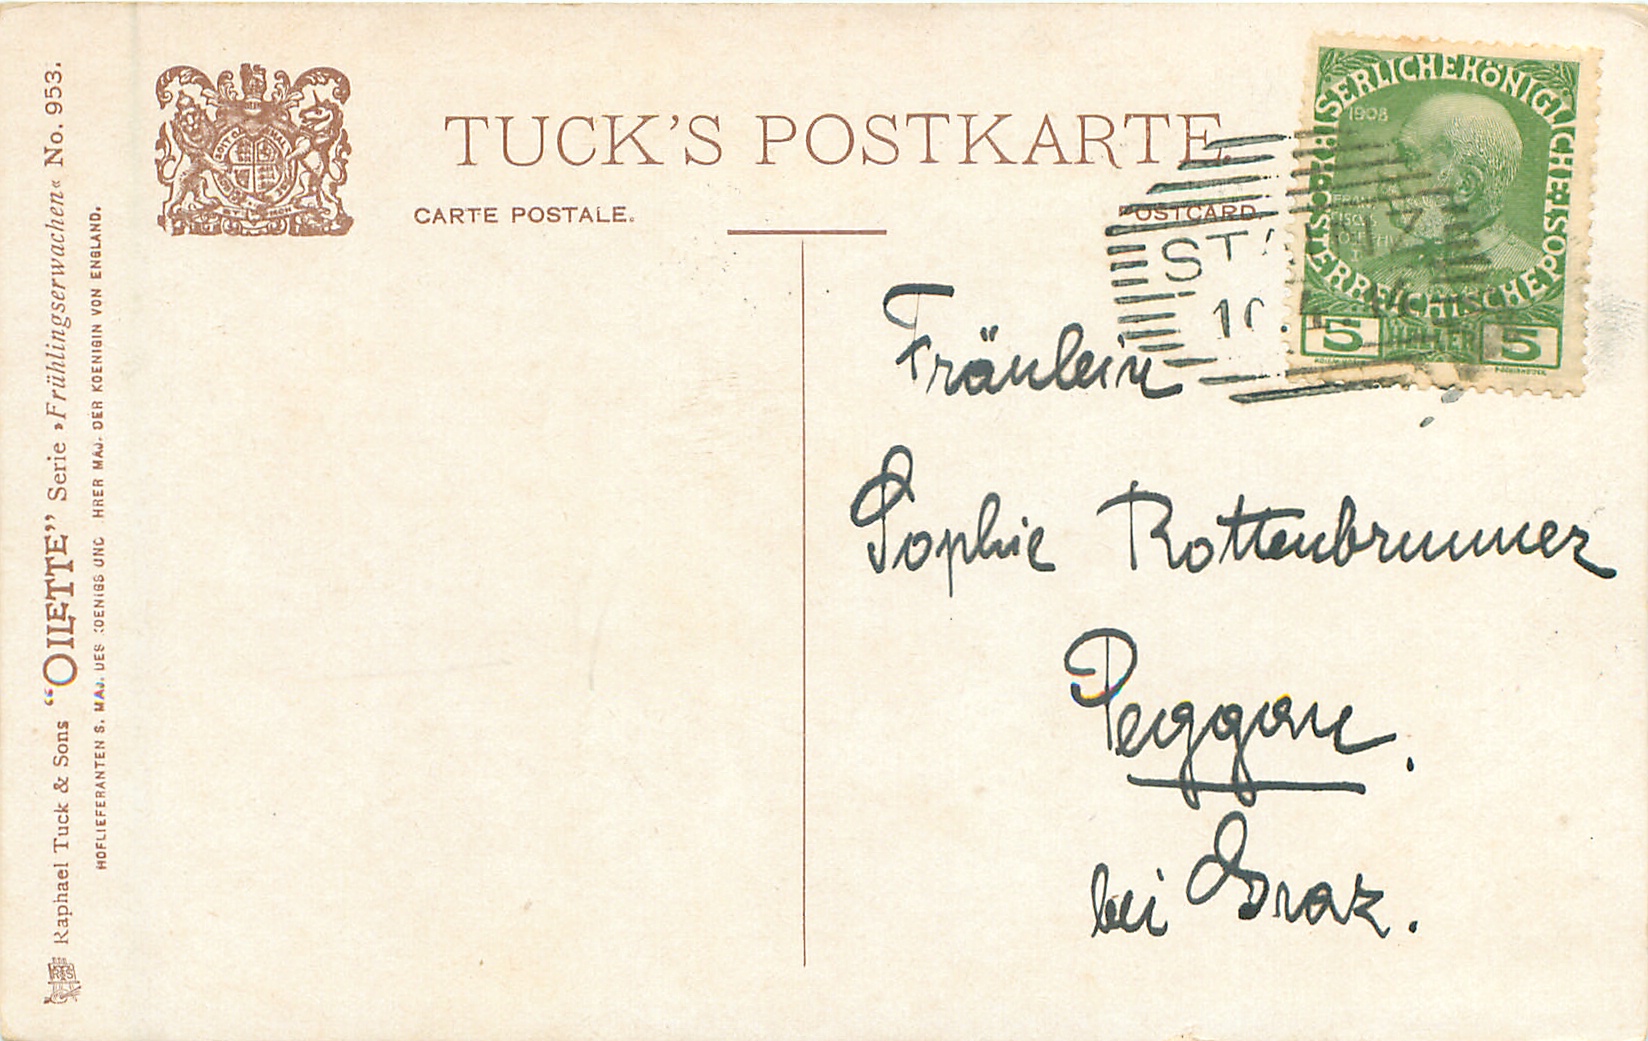 TUCK'S POSTKARTE.
CARTE POSTALE.
POSTCARD.
Raphael Tuck & Sons “OILETTE” Serie »Frühlingserwachen« No. 953.
HOFLIEFERANTEN S. MAJ. DES KOENIGS UND IHRER MAJ. DER KOENIGIN VON ENGLAND.
KAISERLICHEKÖNIGLICHE ÖSTERREICHISCHE POST
1908
5 HELLER 5
Fräulein
Sophie Rottenbrunner
Peggau.
bei Graz.